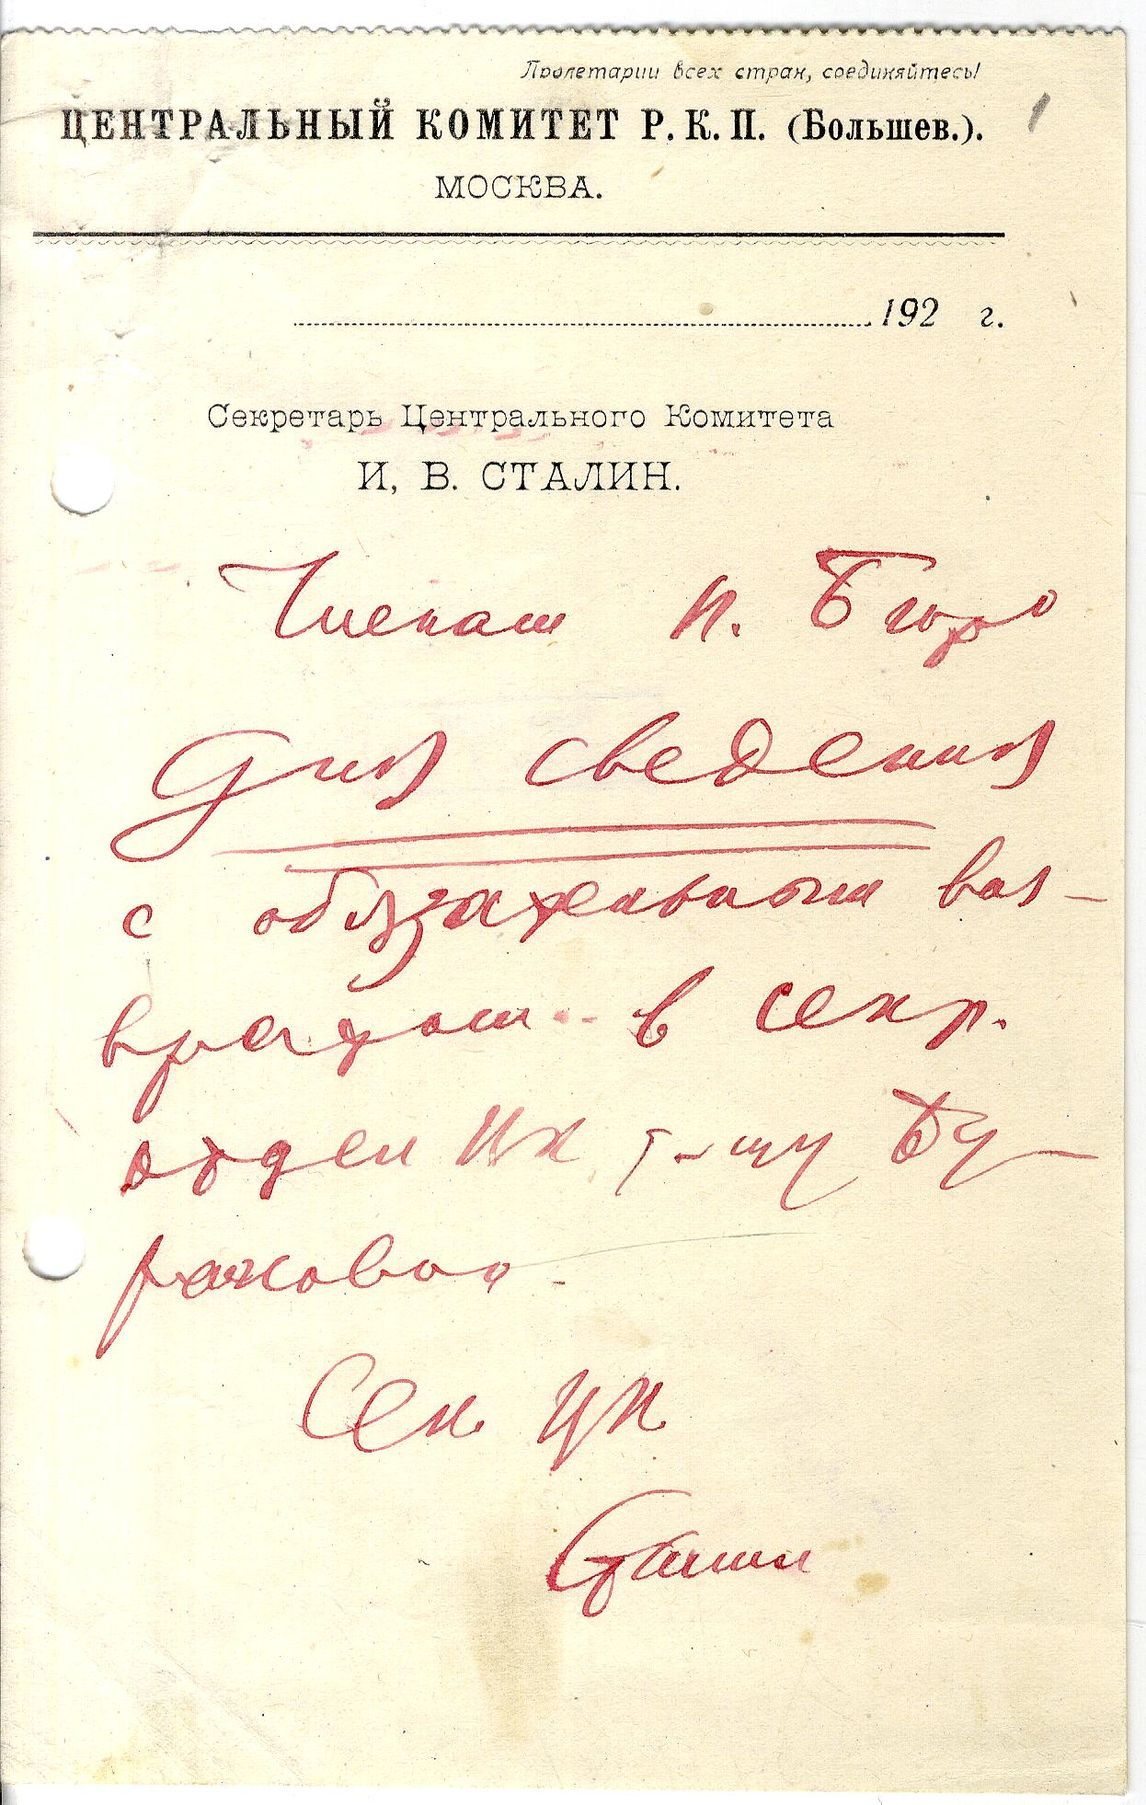 Пролетарии всех стран, соединяйтесь!
ЦЕНТРАЛЬНЫЙ КОМИТЕТ Р. К. П. (Большев.).
1
МОСКВА.
192 г.
Секретарь Центрального Комитета
И. В. СТАЛИН.
Членам П. Бюро
Для сведения
с обязательным воз-
вратом в секр.
отдел ЦК т-щу Бу-
раковой.
Сек. ЦК
Сталин